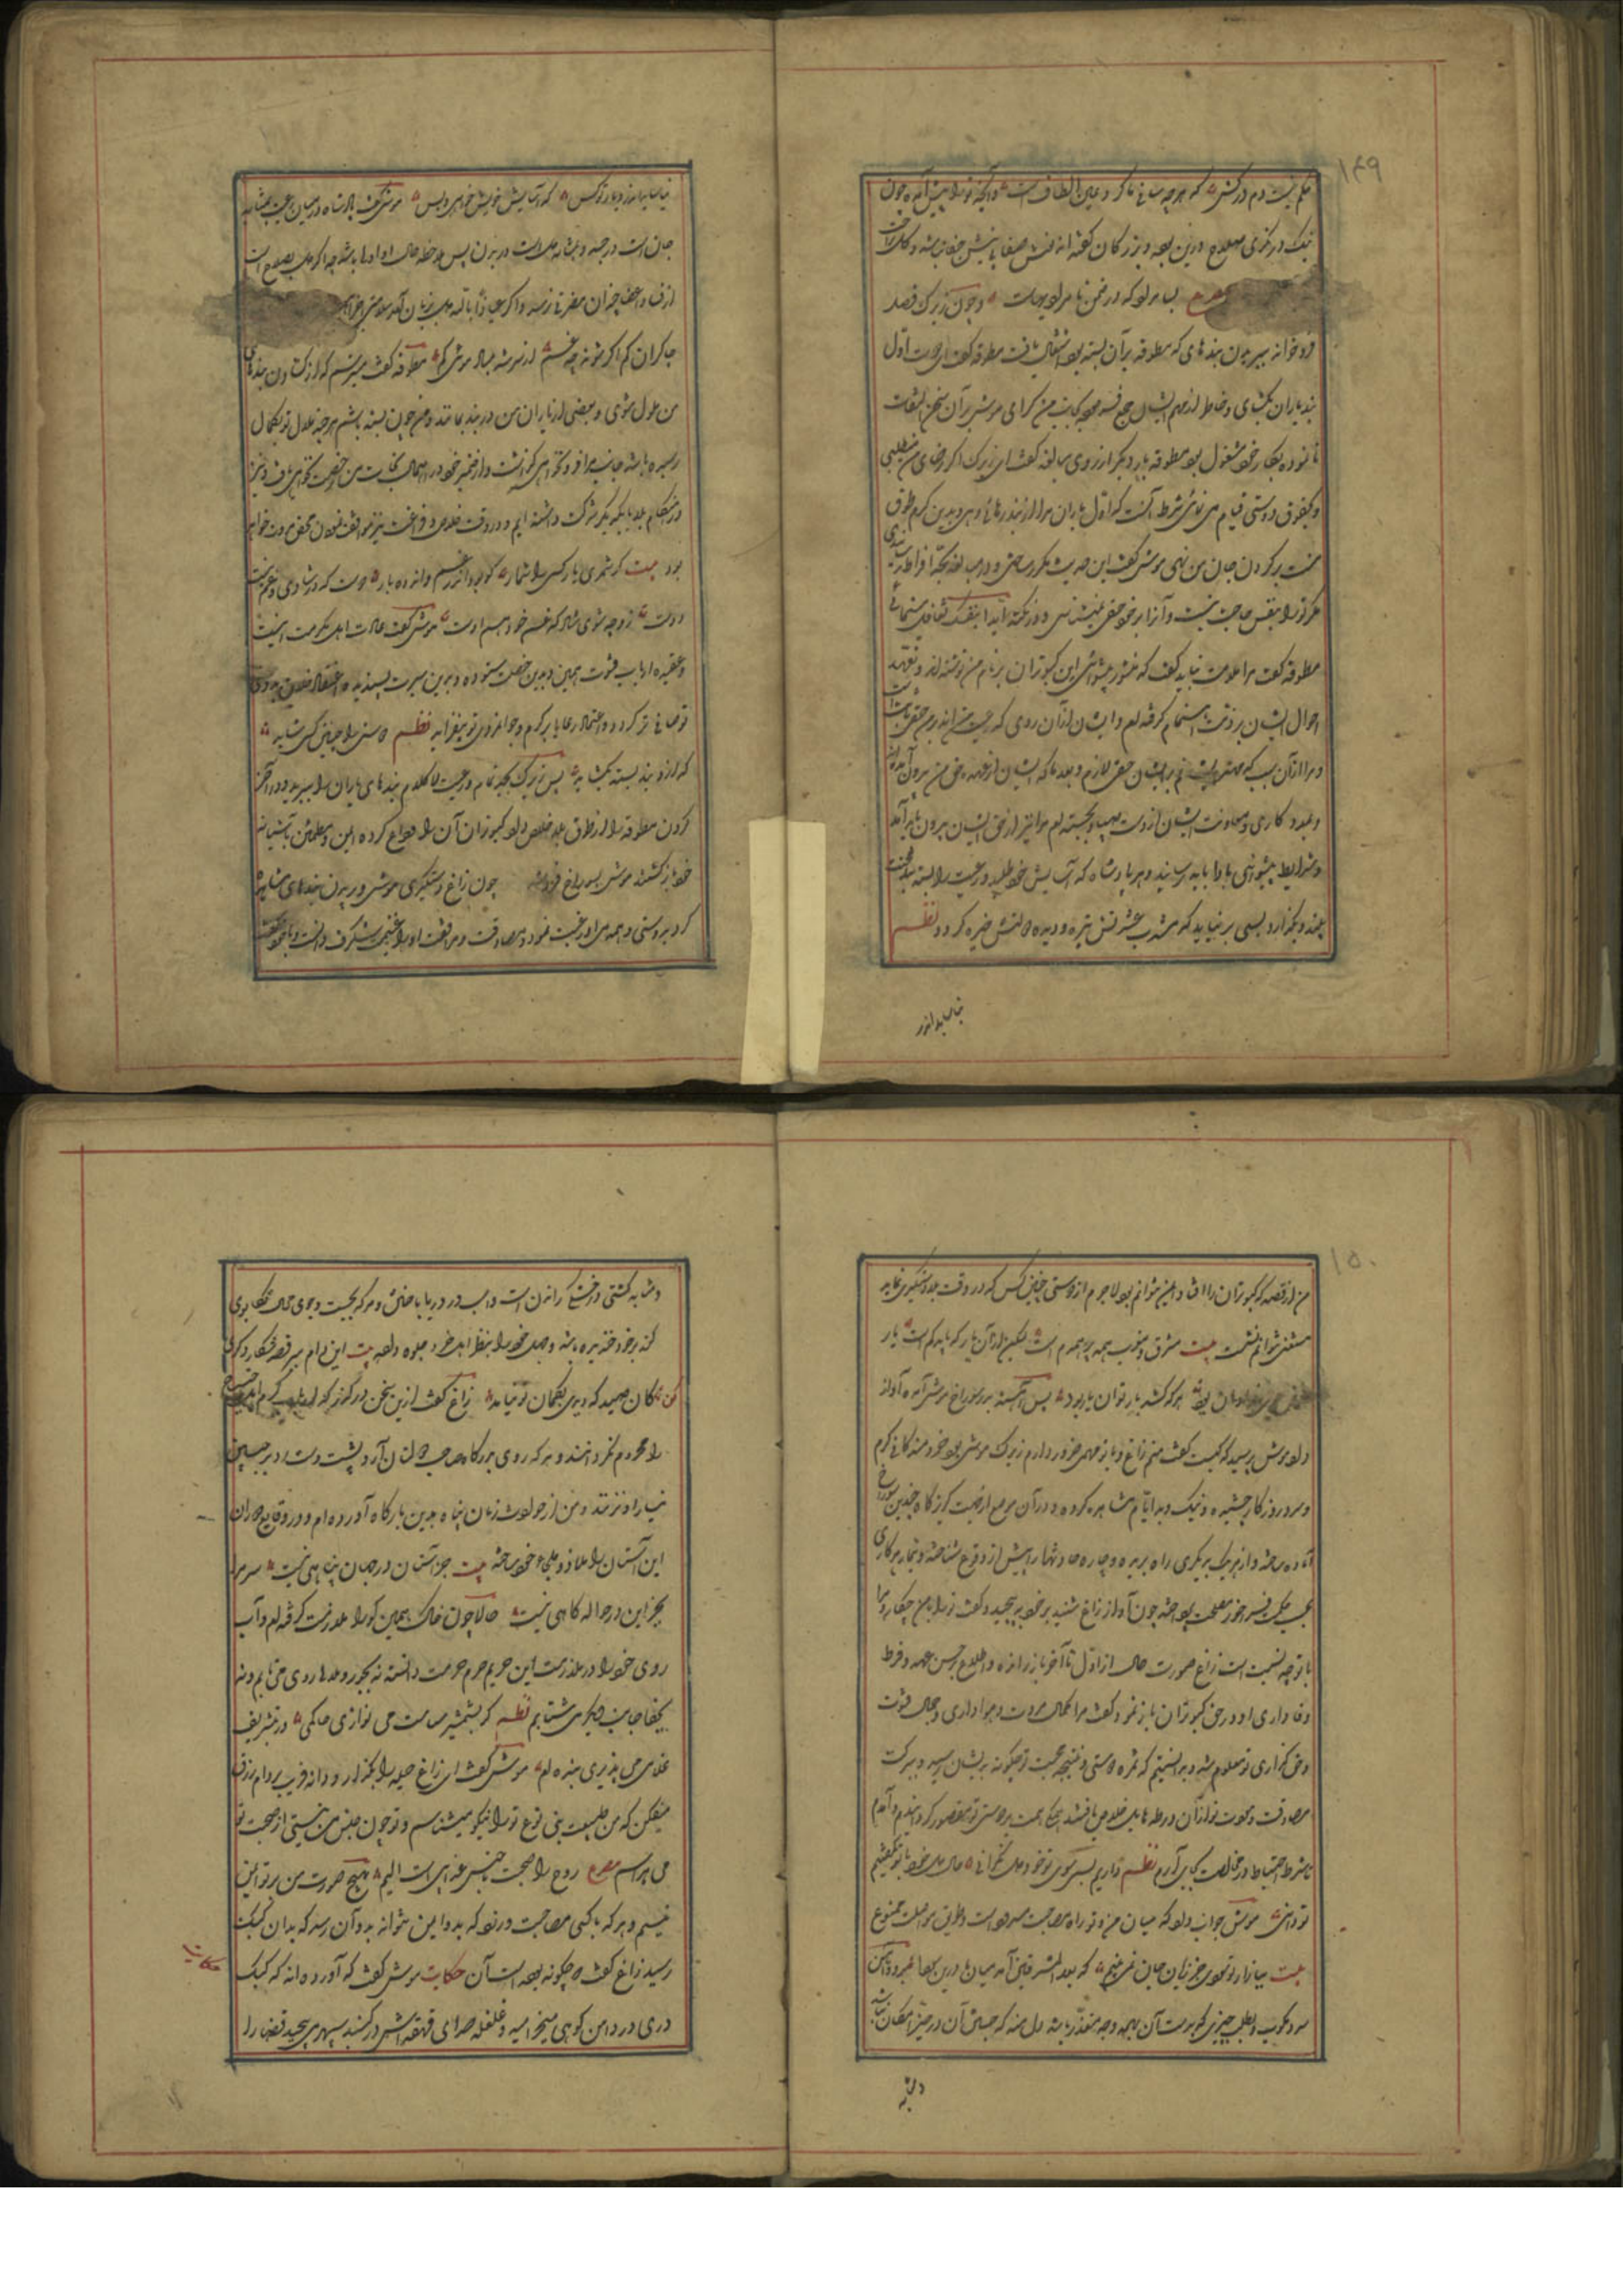 ۱۴۹
حکم نیست دم درکش که هرچه ساقی ما کرد عین الطاف است و آنچه تو را پیش آمده چون
نیک درنگری صلاح درین بوده و بزرگان گفته‌اند
مصرع بسا مراد که در ضمن نامرادیهاست و چون زیرک فصل
فرو خواند ببریدن بندهای که مطوقه بدان بسته بود اشتغال یافت مطوقه گفت ای دوست اول
بند یاران بگشای و خاطر از مهم ایشان جمع موش بدان سخن التفات
نانموده بکار خود مشغول بود مطوقه بار دیگر از روی مبالغه گفت ای زیرک اگر رضای من میطلبی
و بحقوق دوستی قیام می‌نمائی شرط آنست که اول یاران مرا از بند رهائی دهی و بدین کرم طوق
منت بر گردن جان من نهی موش گفت این حدیث مکرر ساختی و در مبالغه بحد افراط رسانیدی
مگر ترا بنفس حاجت نیست و آنرا بر خود حقی نمیشناسی
مطوقه گفت مرا ملامت نباید کرد که منشور پیشوائی این کبوتران بر نام من نوشته‌اند و تعهد
احوال ایشان بر ذمت اهتمام گرفته‌ام و ایشان از آن روی که رعیت من‌اند بر من حقی ثابت است
و مرا از آن سبب که مهتر ایشانم بر ایشان حقی لازم و بعد ما که ایشان از عهده حق من بیرون آمده‌اند
و بمدد کاری و معاونت ایشان از دست صیاد بجسته‌ام مرا نیز از حق ایشان بیرون باید آمد
و شرایط پیشوائی با ادا باید رسانید و هر پادشاه که آسایش خود طلبد و رعیت را بسته بند محنت
بیند و بگذارد بسی برنیاید که مشرب عیشش تیره و دیده دولتش خیره گردد نظم
نیاساید اندر
نیاساید اندر دیار تو کس که آسایش خویش خواهی و بس موش گفت پادشاه در میان رعیت بمثابه
جان است در جسد و بمثابه دل است در بدن پس ملاحظه حال او اولی باشد چه اگر دل بصلاح است
از فساد اعضا چندان مضرتی نرسد و اگر عیاذا بالله دل بزیان آید سلامتی
چاکران کم اگر شوند چه غم از سر شه مباد موئی کم مطوقه گفت میترسم که از گشادن بندهای
من ملول شوی و بعضی از یاران من در بند بمانند و من چون بسته باشم هرچند ملال تو بکمال
رسیده باشد جانب مرا فرو نخواهی گذاشت و از ضمیر خود در اهمال نجات من رخصت نخواهی یافت و نیز
در هنگام بلا با یکدیگر شرکت داشته‌ایم و در وقت خلاص و فراغت نیز موافقت نمودن بحق مروت خواهد
بود بیت گر شمری یار کسی را شمار کو بود اندر غم و اندوه یار دوست که در شادی و غم نیست
دوست زو چه شوی شاد که غم خود هم اوست موش گفت عادت اهل مکرمت اینست
و عقیده ارباب فتوت همین و بدین خصلت ستوده و بدین سیرت پسندیده اعتقاد خلق در دوستی
تو صافی‌تر گردد و اعتماد رعایا بر کرم و جوانمردی تو بیفزاید نظم دوستی را چنین کسی شاید
که ازو بند بسته بگشاید پس زیرک بجد تمام و رغبت لا کلام بندهای یاران را ببرید و در آخر
گردن مطوقه را از طوق بلا خلاص داد کبوتران آن را وداع کرده ایمن و مطمئن بآشیانه
خود بازگشتند موش بسوراخ فرو شد چون زاغ دستگیری موش و بریدن بندهای مشاهده
کرد بدوستی و همدمی او رغبت نمود و مصادقت و مرافقت او را غنیمتی شگرف دانست و با خود گفت
۱۵۰
من از قصه که کبوتران را افتاد ایمن نتوانم بود لاجرم از دوستی چنین کس که در وقت بلا دستگیری نماید
مستغنی نتوانم نشست بیت مشرق و مغرب همه پر همدم است لیکن از آن یار که باید کم است یار
هر که کشد بار تو آن یار بود پس آهسته بدر سوراخ موش آمده آواز
داد موش پرسید که کیست گفت منم زاغ و با تو مهمی ضرور دارم زیرک موشی بود خردمند کافی گرم
و سرد روزگار چشیده و نیک و بد ایام مشاهده کرده و در آن موضع از جهت گریزگاه چندین سوراخ
آماده ساخته و از هر یک بدیگری راه بریده و چاره حادثها را پیش از وقوع شناخته و تیمار هر کاری
بحسب حکمت فراخور مصلحت پرداخته چون آواز زاغ شنید بر خود بپیچید و گفت ترا با من چکار و مرا
با تو چه نسبت است زاغ صورت حال از اول تا آخر باز راند و اطلاع بر حسن عهد و فرط
وفاداری او در حق کبوتران باز نمود و گفت مرا کمال مروت و هواداری و جمال فتوت
و حق‌گزاری تو معلوم شد و بدانستم که ثمره دوستی و نتیجه محبت تو چگونه بدیشان رسید و ببرکت
مصادقت و مودت تو از آن ورطه هایل خلاص یافتند همگی همت بر دوستی تو مقصور گردانیدم و آمدم
تا شرط احتیاط در مخالصت بجای آرم نظم داریم بسوی تو خود دل نگرانی حال دل خود با تو بگفتیم
تو دانی موش جواب داد که میان من و تو راه مصاحبت مسدود است و طرق مواصلت ممنوع
بیت ببازار تو سودی جز زیان جان نمی‌بینم که بعد المشرقین آمد میان
سرد مکوب و طلب چیزی که بدست آن بهیچ وجه متعذر باشد دل منه که جستن آن در حیز امکان نباشد
و مشابه کشتی در خشکی راندن است و اسب در دریا تاختن و هر که بجست و جوی محال تکاپوی
کند بر خود خندیده باشد و جهل خود را بنظر اهل خرد جلوه داده بیت این دام ببر قصد شکار دگری
کن کان صید که دیدی بکمان تو نیاید زاغ گفت ازین سخن درگذر که ارباب کرم اهل احتیاج
را محروم نگردانند و هر که روی بدرگاه صاحب دولتان آرد پشت دست رد بر جبین
نیاز او نزنند و من از حوادث زمان پناه بدین بارگاه آورده‌ام و در وقایع دوران
این آستان را ملاذ و ملجاء خود ساخته بیت جز آستان در جهان پناهی نیست سر مرا
بجز این در حواله گاهی نیست حالا چون خاک همین کو را ملازمت گرفته‌ام و آب
روی خود را در ملازمت این حریم حرم حرمت دانسته نه بجور و ملامت روی می‌تابم و نه
بجفا جانب دیگری میشتابم نظم گر بشمشیر سیاست می‌نوازی حاکمی ور بتشریف
غلامی می‌پذیری بنده‌ام موش گفت ای زاغ حیله را بگذار و دانه فریب بر دام زرق
میفکن که من طبیعت بنی نوع تو را نیکو میشناسم و تو چون جنس من نیستی از صحبت تو
می‌هراسم مصرع روح را صحبت ناجنس عذابی است الیم بهیچ صورت من بر تو ایمن
نیستم و هر که با کسی مصاحبت ورزد که بدو ایمن نتواند بود آن رسد که بدان کبک
رسید زاغ گفت چگونه بوده است آن حکایت موش گفت که آورده‌اند که کبک
دری در دامن کوهی میخرامید و غلغله صدای قهقهه‌اش در گنبد سپهر می‌پیچید قضا را
حکایت